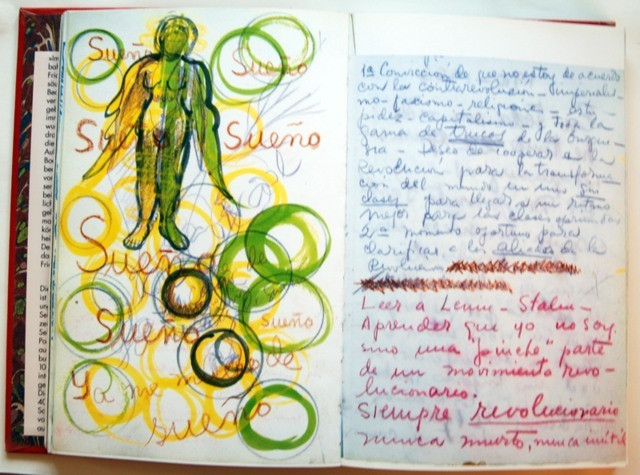 Sueño
Sueño
Sueño
Sueño
Sueño
de
Sueño
sueño
Ya me de
sueño
1ª Convicción de que no estoy de acuerdo
con la contrarrevolución - imperialis-
mo - fascismo - religiones - estu-
pidez - capitalismo - Toda la
gama de trucos de la burgue-
sia - Deseo de cooperar a la
Revolución para la transforma-
ción del mundo en uno sin
clases para llegar a un ritmo
mejor para las clases oprimidas
2ª momento oportuno para
clarificar a los aliados de la
Revolución
Leer a Lenin - Stalin -
Aprender que yo no soy
sino una "pinche" parte
de un movimiento revo-
lucionario.
Siempre revolucionario
nunca muerto, nunca inútil